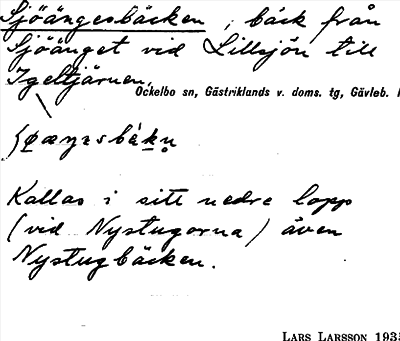 Sjöängesbäcken, bäck från
Sjöänget vid Lillsjön till
Igeltjärnen.
Ockelbo sn, Gästriklands v. doms. tg, Gävleb.
Kallas i sitt nedre lopp
(vid Nystugorna) även
Nystugbäcken.
LARS LARSSON 1935